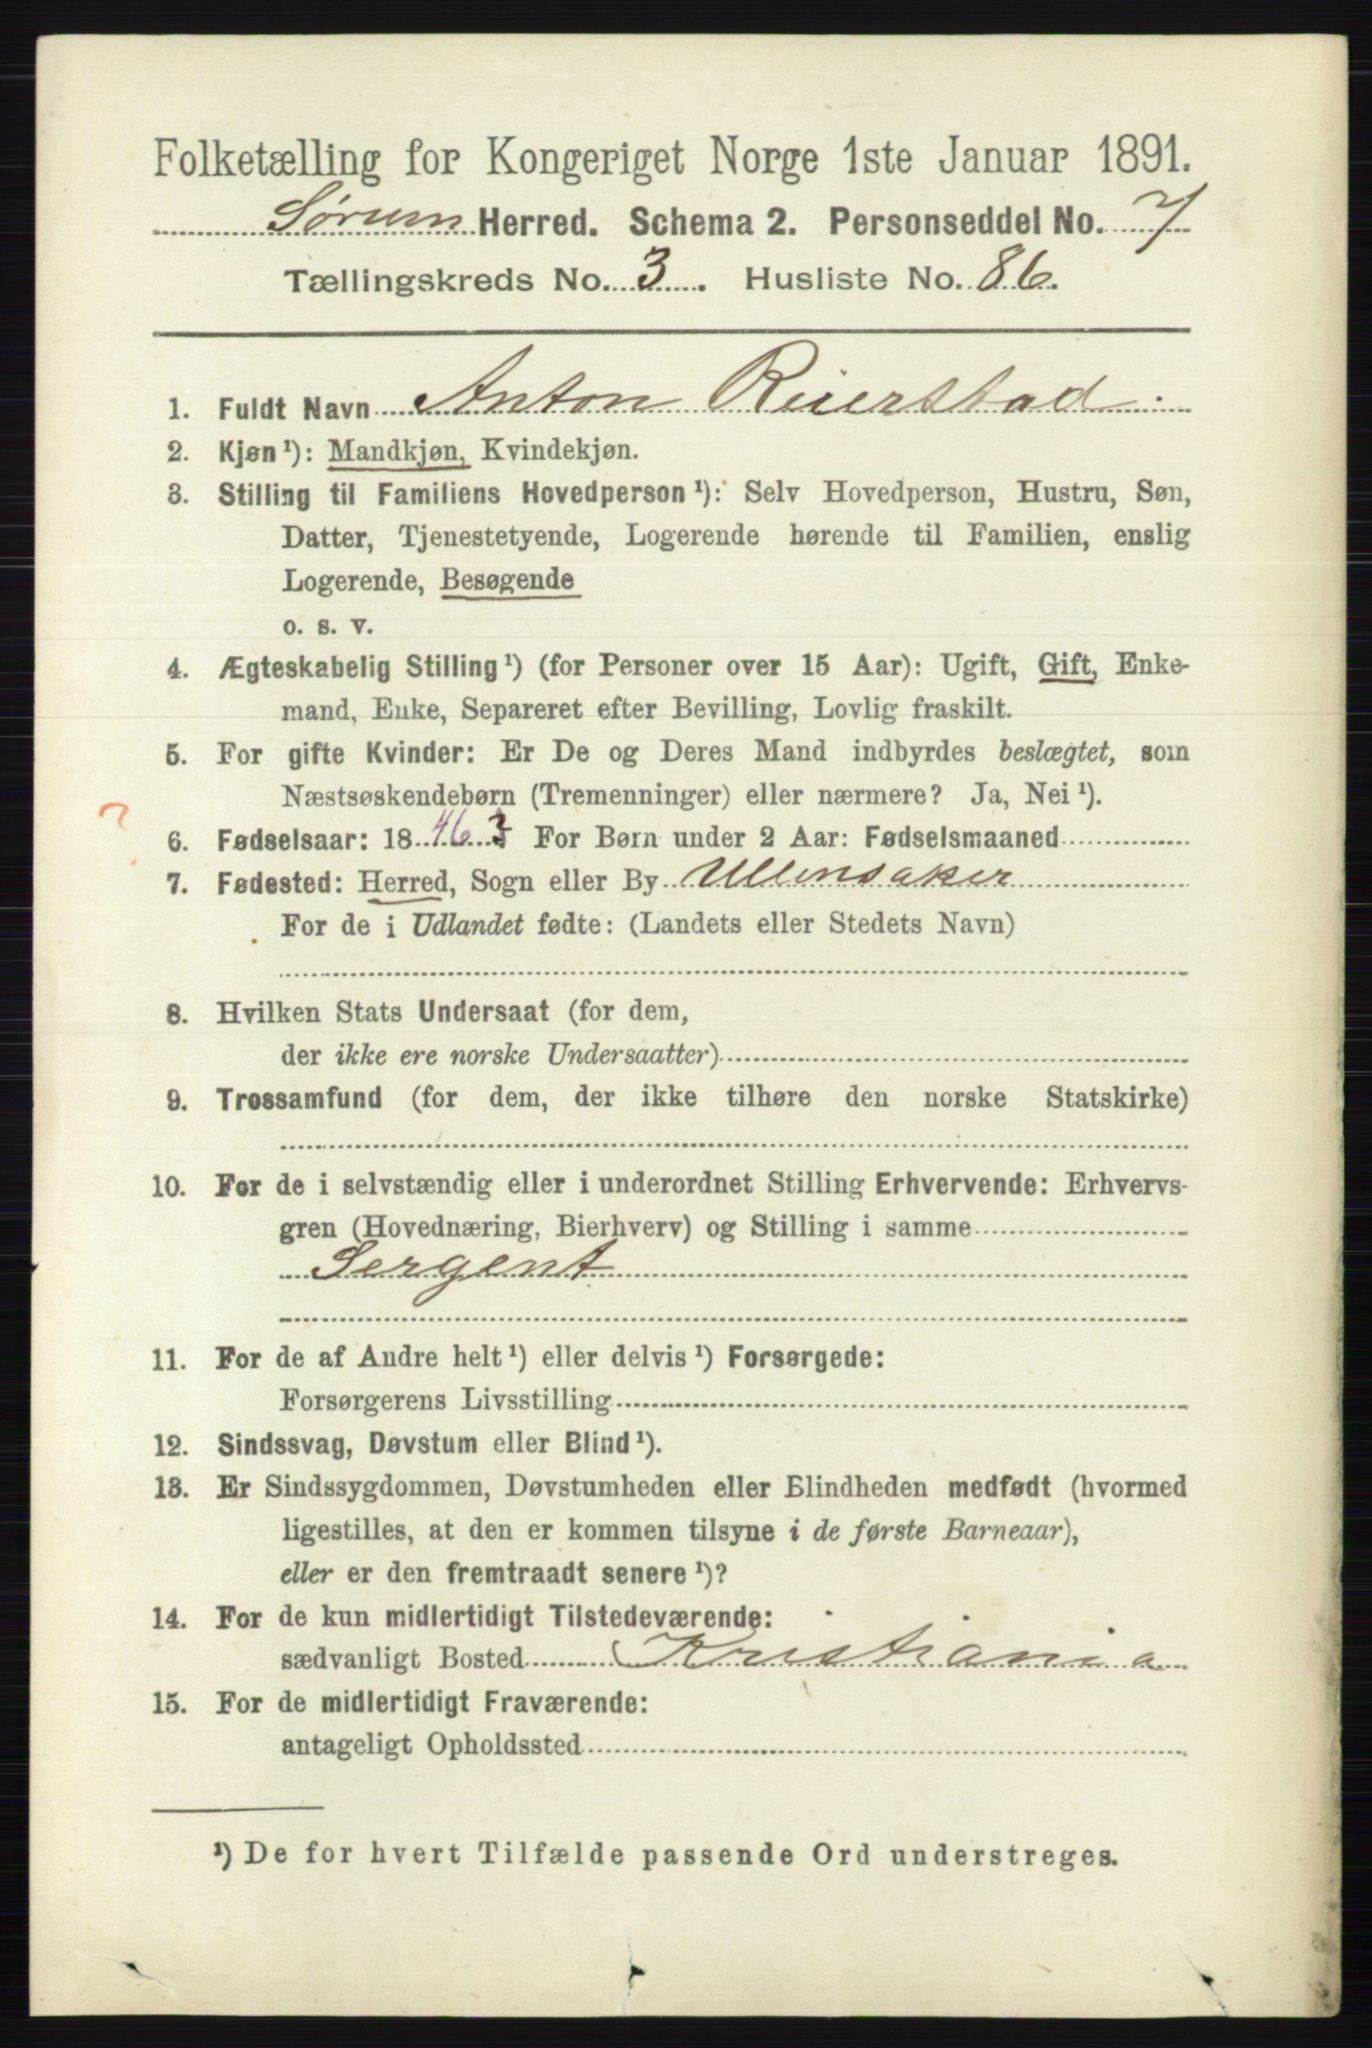 Folketælling for Kongeriget Norge 1ste Januar 1891.
Sørum Herred. Schema 2. Personseddel No. 7
Tællingskreds No. 3. Husliste No. 86.
1. Fuldt Navn Anton Reierstad
2. Kjøn ¹): Mandkjøn, Kvindekjøn.
3. Stilling til Familiens Hovedperson ¹): Selv Hovedperson, Hustru, Søn,
Datter, Tjenestetyende, Logerende hørende til Familien, enslig
Logerende, Besøgende
o. s. v.
4. Ægteskabelig Stilling ¹) (for Personer over 15 Aar): Ugift, Gift, Enke-
mand, Enke, Separeret efter Bevilling, Lovlig fraskilt.
5. For gifte Kvinder: Er De og Deres Mand indbyrdes beslægtet, som
Næstsøskendebørn (Tremenninger) eller nærmere? Ja, Nei ¹).
6. Fødselsaar: 18 46 ? For Børn under 2 Aar: Fødselsmaaned
7. Fødested: Herred, Sogn eller By Ullensaker
For de i Udlandet fødte: (Landets eller Stedets Navn)
8. Hvilken Stats Undersaat (for dem,
der ikke ere norske Undersaatter)
9. Trossamfund (for dem, der ikke tilhøre den norske Statskirke)
10. For de i selvstændig eller i underordnet Stilling Erhvervende: Erhvervs-
gren (Hovednæring, Bierhverv) og Stilling i samme
Sergent
11. For de af Andre helt ¹) eller delvis ¹) Forsørgede:
Forsørgerens Livsstilling
12. Sindssvag, Døvstum eller Blind ¹).
13. Er Sindssygdommen, Døvstumheden eller Blindheden medfødt (hvormed
ligestilles, at den er kommen tilsyne i de første Barneaar),
eller er den fremtraadt senere ¹)?
14. For de kun midlertidigt Tilstedeværende:
sædvanligt Bosted Kristiania
15. For de midlertidigt Fraværende:
antageligt Opholdssted
¹) De for hvert Tilfælde passende Ord understreges.